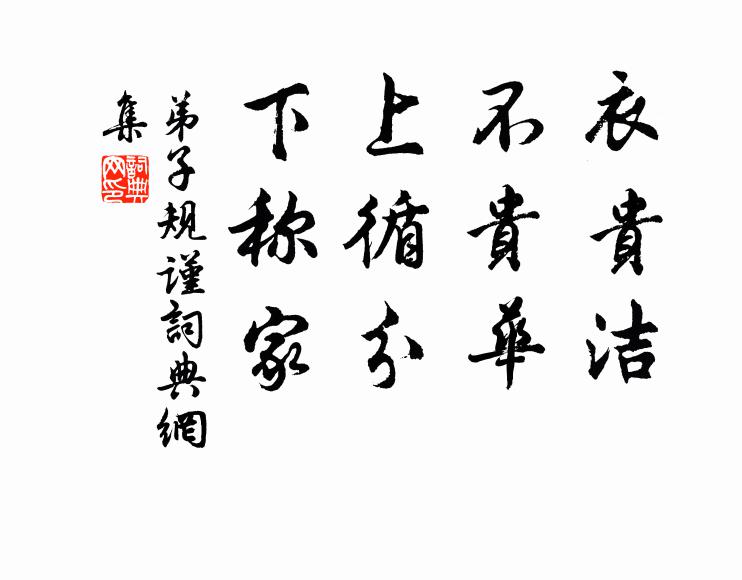 衣貴洁
不貴華
上循分
下称家
弟子規謹詞典網
集
詞典
网印